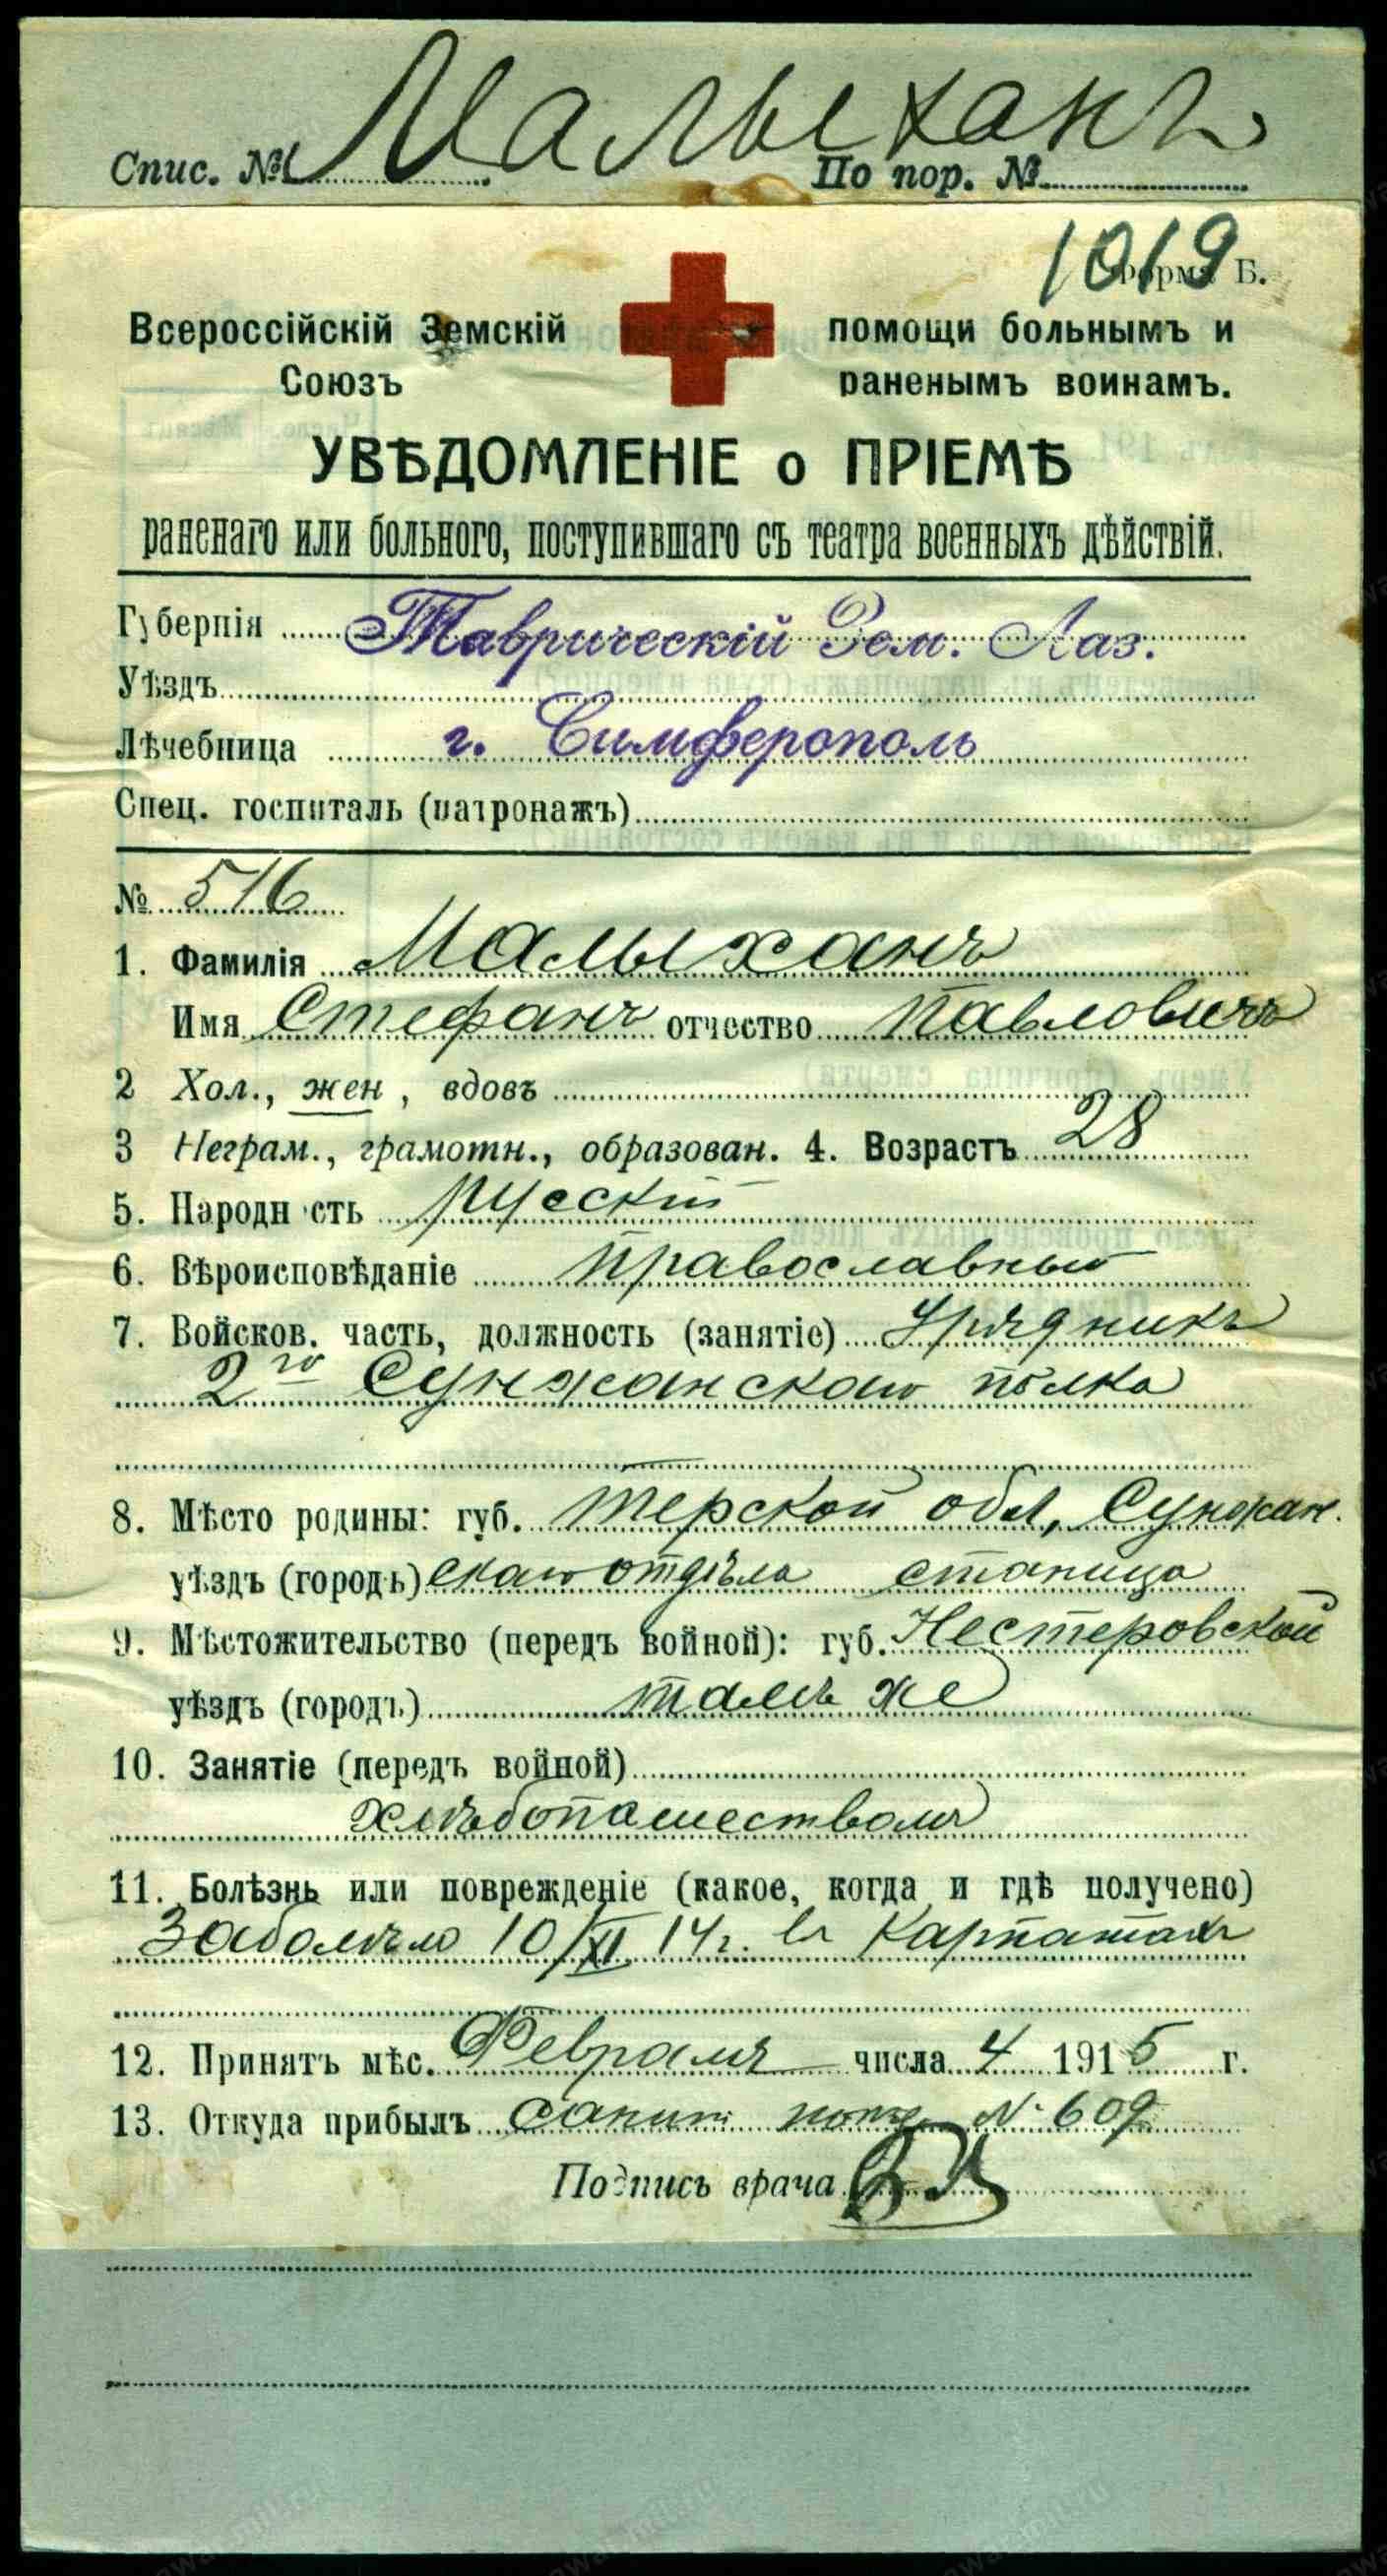 Малыханъ
Спис. № По пор. №
1019
Форма Б.
Всероссійскій Земскій помощи больнымъ и
Союзъ раненымъ воинамъ.
УВѢДОМЛЕНІЕ о ПРІЕМѢ
раненаго или больного, поступившаго съ театра военныхъ дѣйствій.
Губернія Таврическій Зем. Лаз.
Уѣздъ
Лѣчебница г. Симферополь
Спец. госпиталь (патронажъ)
№ 516
1. Фамилія Малыханъ
Имя Стефанъ отчество Павловичъ
2 Хол., жен , вдовъ
3 Неграм., грамотн., образован. 4. Возрастъ 28
5. Народн сть русскій
6. Вѣроисповѣданіе православный
7. Войсков. часть, должность (занятіе) Урядникъ
2го Сунжанскаго полка
8. Мѣсто родины: губ. Терской обл, Сунжан.
уѣздъ (городъ) скаго отдѣла станица
9. Мѣстожительство (передъ войной): губ. Нестеровской
уѣздъ (городъ) тамъ же
10. Занятіе (передъ войной)
хлѣбопашествомъ
11. Болѣзнь или поврежденіе (какое, когда и гдѣ получено)
Заболѣлъ 10/XI 14г. въ Карпатахъ
12. Принятъ мѣс. Февраля числа 4 1915 г.
13. Откуда прибылъ санит. № 609
Подпись врача